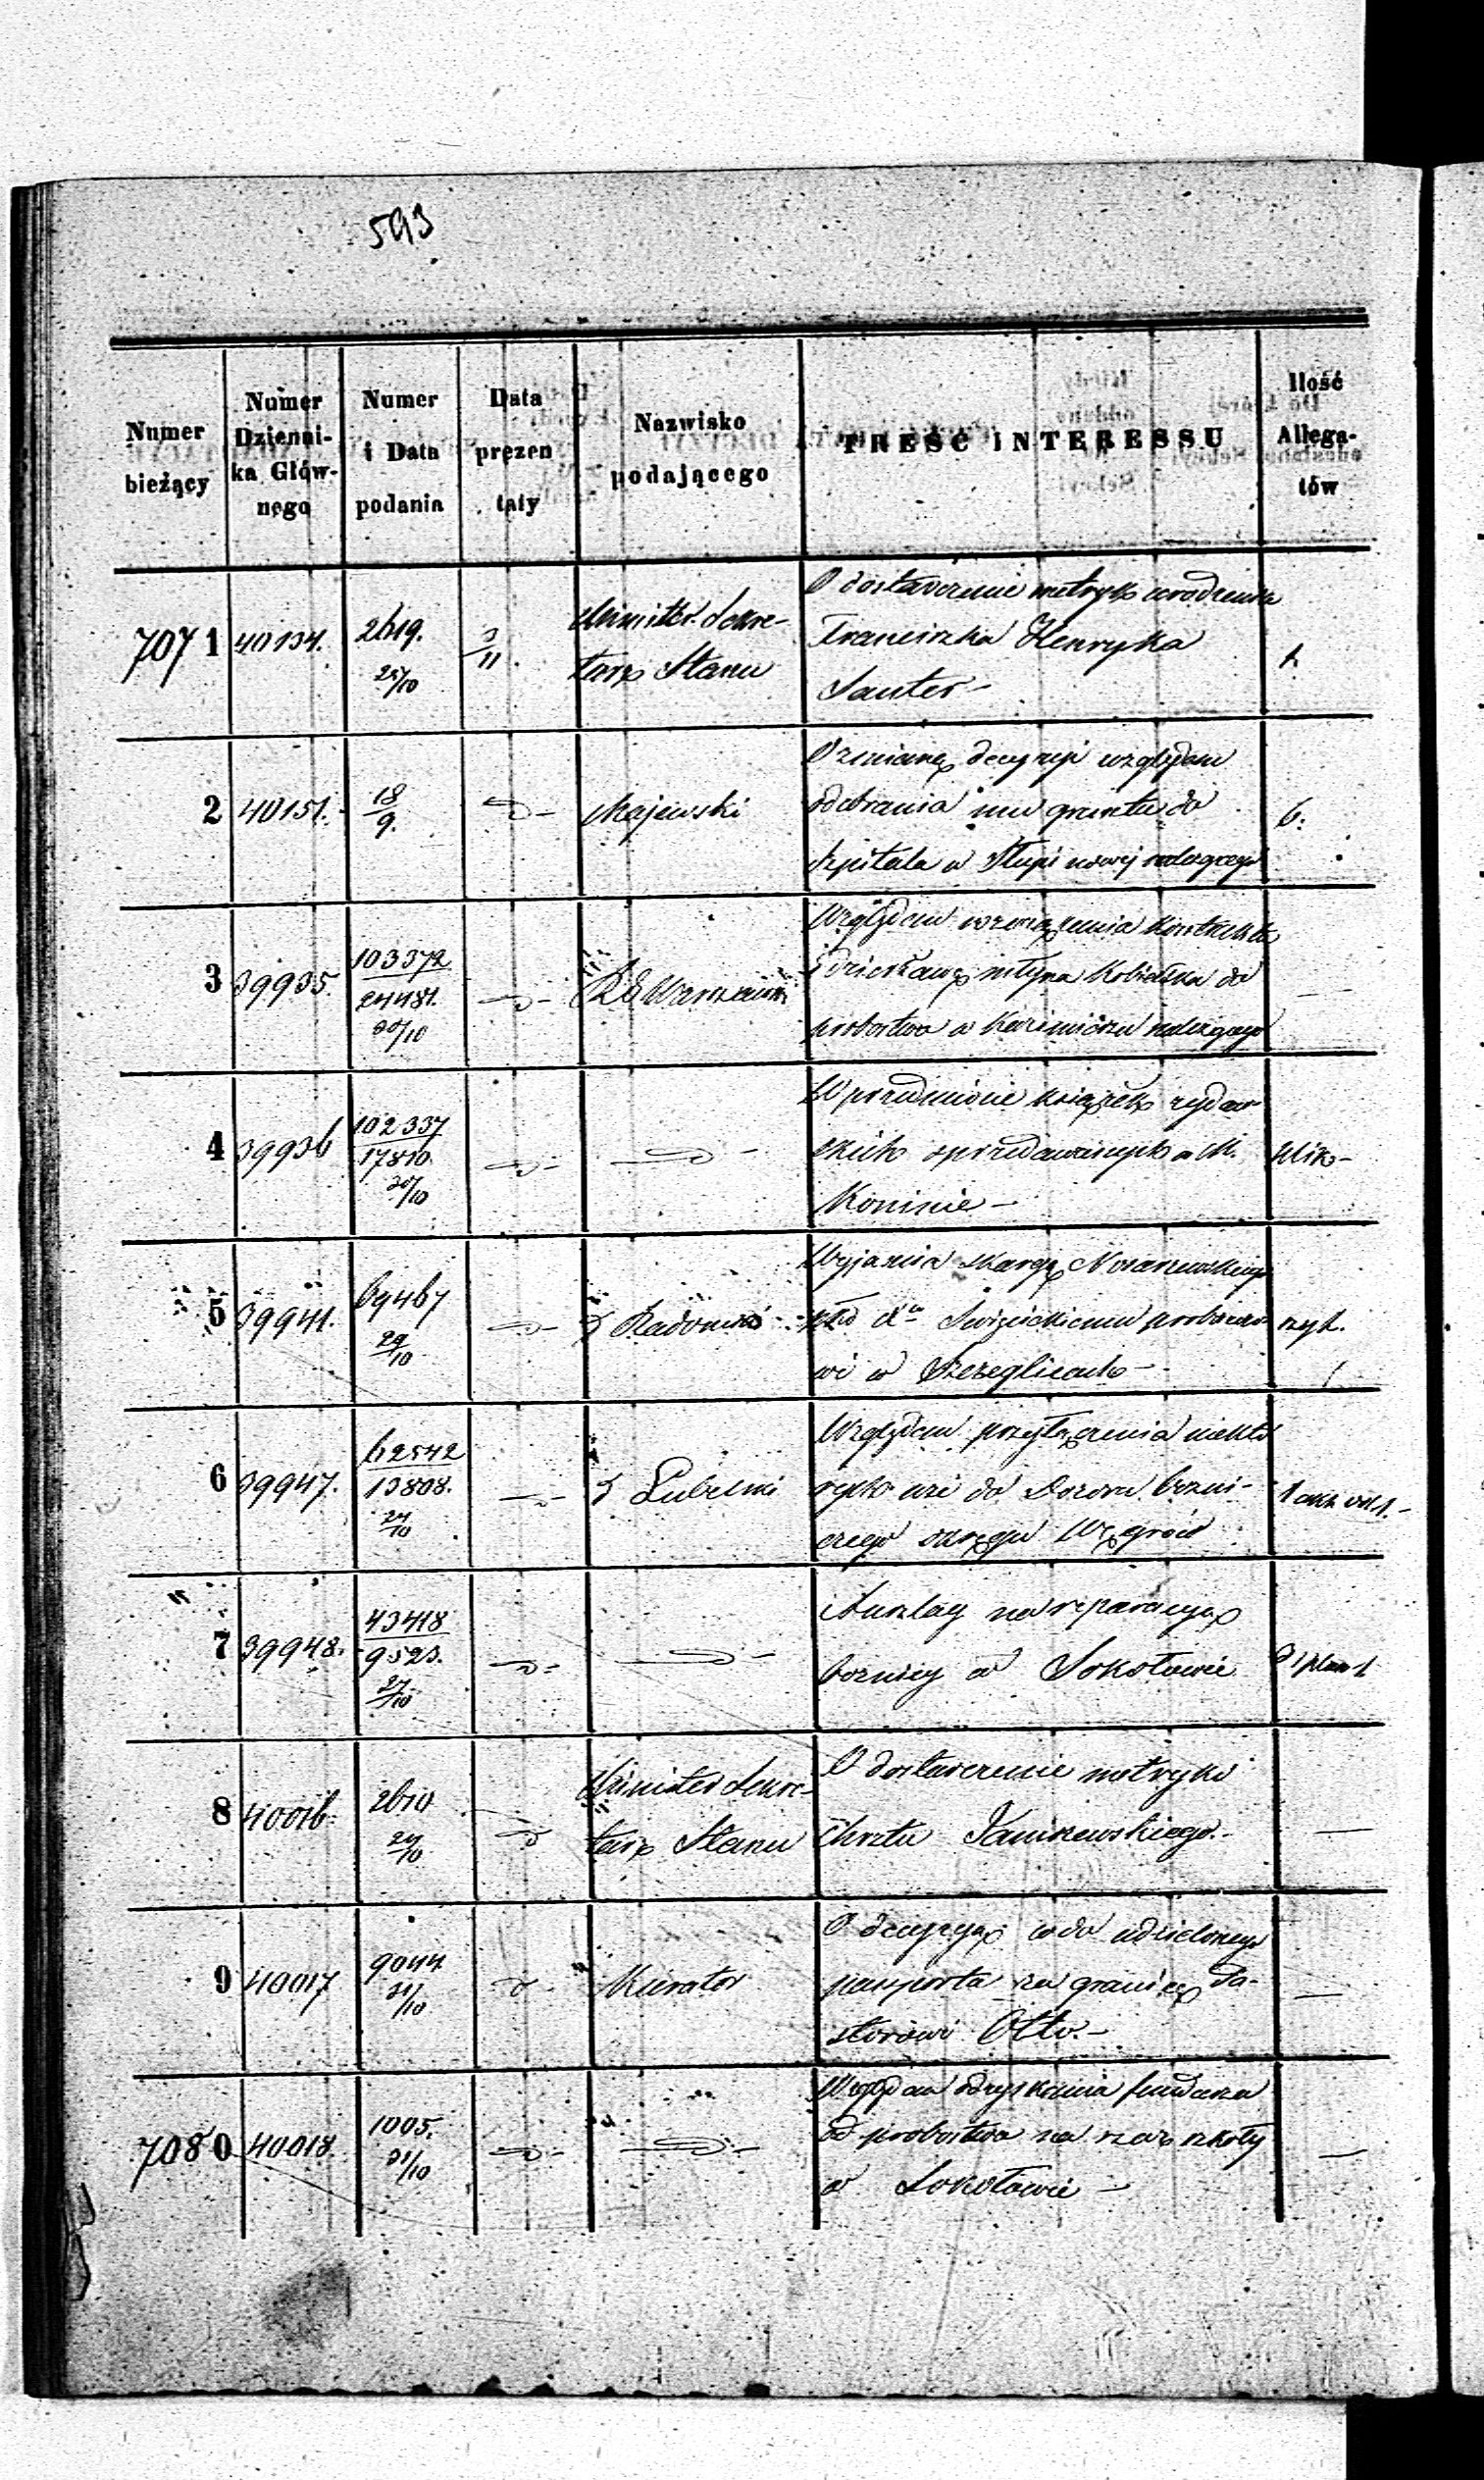 593
Numer bieżący
Numer Dzienni-ka Głów-nego
Numer i Data podania
Data prezen taty
Nazwisko podającego
TREŚĆ INTERESSU
Ilość Allega-tów
7071 40134. 2619. 25/10 3/11. Minister Sekre-
tarz Stanu
O dostarczenie metryki urodzenia
Franciszka Henryka
Sauter -
1.
2 40151. 18/9. Majewski
O zmianę decyzji względem
odebrania mu gruntu do
szpitala w Słupi nowej należącego
6.
3 39935. 103372 24481. 30/10 RG Warszawski
Względem rozwiązania kontraktu
dzierżawę młyna Kobiałka do
probostwa w Kazimierzu należącego
4 39936 102337 17810 30/10
W przedmiocie książek żydow-
skich sprzedawanych w M.
Koninie -
5 39941. 69467 29/10 Radomski
Wyjaśnia skargę
Xu Święcickiemu proboszczo
wi w Szczeglicach -
6 39947. 62542 13808. 27/10 Lubelski
Względem przyłączenia niektó
rych wsi do Dozoru bożni-
czego okręgu Węgrów
7 39948. 43418 9523. 27/10
Anszlag na reparacyą
bożnicy w Sokołowie
plan 1
8 40016. 2610 29/10 Minister Sekre-
tarz Stanu
O dostarczenie metryki
Chrztu Janiszewskiego. -
9 40017 9044 31/10 Kurator
O decyzyą co do udzielonego
paszportu za granicę Pa-
storowi Otto. -
7080 40018. 1005. 31/10
Względem odzyskania funduszu
od probostwa na rzecz szkoły
w Sokołowie -